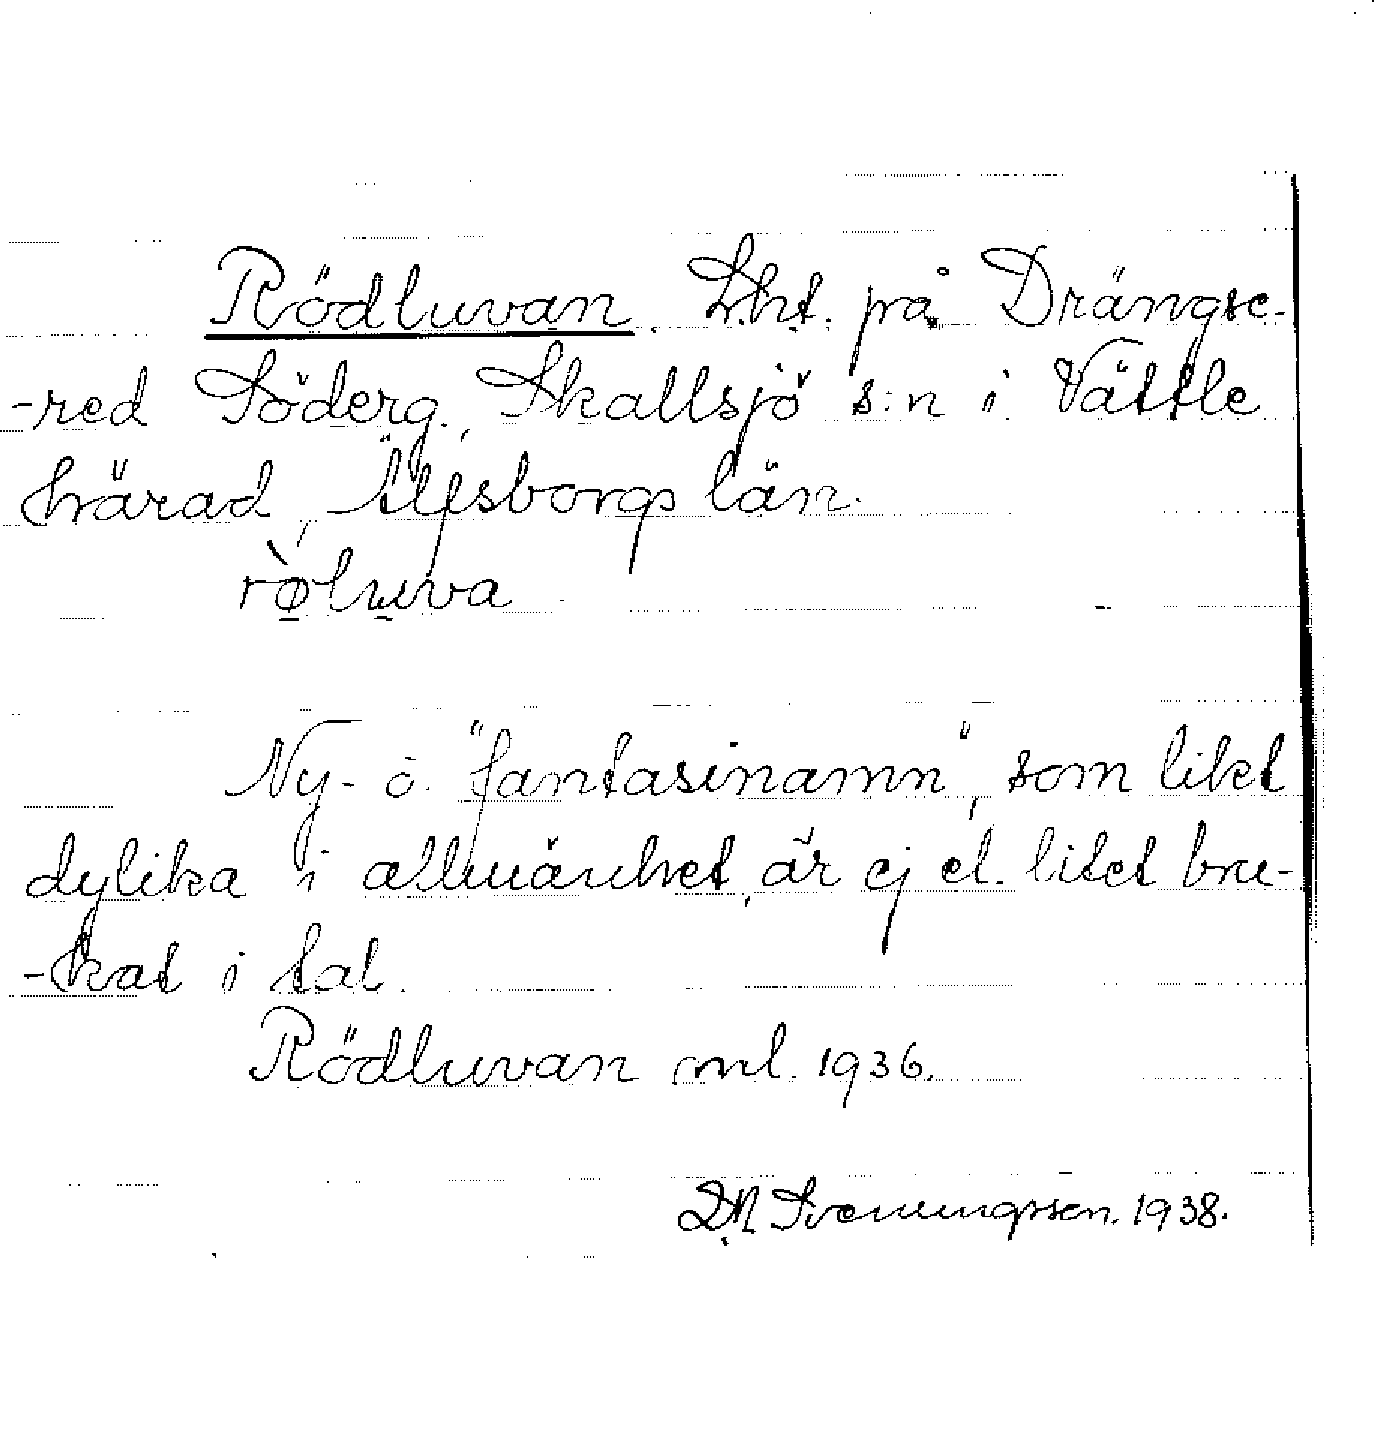 Rödluvan. Lht. på Drängse-
-red Söderg., Skallsjö s:n i Vättle
härad, Älfsborgs län.
rö̀luva
Ny- o. "fantasinamn", som likt
dylika i allmänhet, är ej el. litet bru-
-kat i tal.
Rödluvan ml. 1936.
D.N. Sveningsson. 1938.